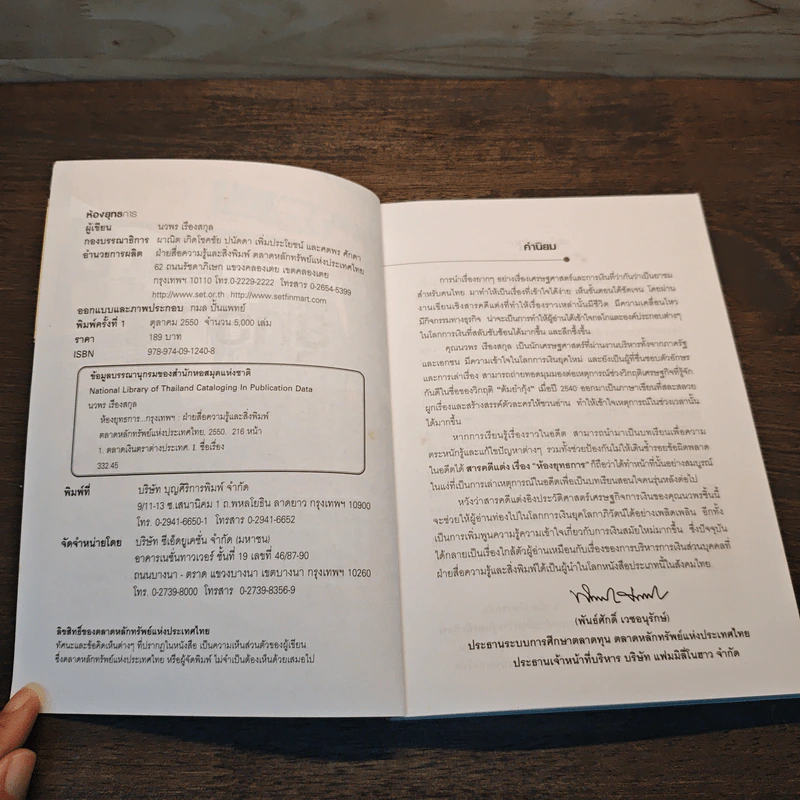 ห้องยุทธการ
ผู้เขียน นวพร เรืองสกุล
กองบรรณาธิการ ผาณิต เกิดโชคชัย ปนัดดา เพิ่มประโยชน์ และคตพร ศักดา
อำนวยการผลิต ฝ่ายสื่อความรู้และสิ่งพิมพ์ ตลาดหลักทรัพย์แห่งประเทศไทย
62 ถนนรัชดาภิเษก แขวงคลองเตย เขตคลองเตย
กรุงเทพฯ 10110 โทร.0-2229-2222 โทรสาร 0-2654-5399
http://www.set.or.th http://www.setfinmart.com
ออกแบบและภาพประกอบ กมล ปั้นแพทย์
พิมพ์ครั้งที่ 1 ตุลาคม 2550 จำนวน 5,000 เล่ม
ราคา 189 บาท
ISBN 978-974-09-1240-8
ข้อมูลบรรณานุกรมของสำนักหอสมุดแห่งชาติ
National Library of Thailand Cataloging in Publication Data
นวพร เรืองสกุล
ห้องยุทธการ...กรุงเทพฯ : ฝ่ายสื่อความรู้และสิ่งพิมพ์
ตลาดหลักทรัพย์แห่งประเทศไทย, 2550. 216 หน้า
1. ตลาดเงินตราต่างประเทศ. I. ชื่อเรื่อง
332.45
พิมพ์ที่ บริษัท บุญศิริการพิมพ์ จำกัด
9/11-13 ซ.เสนานิคม 1 ถ.พหลโยธิน ลาดยาว กรุงเทพฯ 10900
โทร. 0-2941-6650-1 โทรสาร 0-2941-6652
จัดจำหน่ายโดย บริษัท ซีเอ็ดยูเคชั่น จำกัด (มหาชน)
อาคารเนชั่นทาวเวอร์ ชั้นที่ 19 เลขที่ 46/87-90
ถนนบางนา - ตราด แขวงบางนา เขตบางนา กรุงเทพฯ 10260
โทร. 0-2739-8000 โทรสาร 0-2739-8356-9
ลิขสิทธิ์ของตลาดหลักทรัพย์แห่งประเทศไทย
ทัศนะและข้อคิดเห็นต่างๆ ที่ปรากฏในหนังสือ เป็นความเห็นส่วนตัวของผู้เขียน
ซึ่งตลาดหลักทรัพย์แห่งประเทศไทย หรือผู้จัดพิมพ์ ไม่จำเป็นต้องเห็นด้วยเสมอไป
คำนิยม
การนำเรื่องยากๆ อย่างเรื่องเศรษฐศาสตร์และการเงินที่ว่ากันว่าเป็นยาขม
สำหรับคนไทย มาทำให้เป็นเรื่องที่เข้าใจได้ง่าย เห็นขั้นตอนได้ชัดเจน โดยผ่าน
งานเขียนเชิงสารคดีแต่งที่ทำให้เรื่องราวเหล่านั้นมีชีวิต มีความเคลื่อนไหว
มีกิจกรรมทางธุรกิจ น่าจะเป็นการทำให้ผู้อ่านได้เข้าใจกลไกและองค์ประกอบต่างๆ
ในโลกการเงินที่สลับซับซ้อนได้มากขึ้น และลึกซึ้งขึ้น
คุณนวพร เรืองสกุล เป็นนักเศรษฐศาสตร์ที่ผ่านงานบริหารทั้งจากภาครัฐ
และเอกชน มีความเข้าใจในโลกการเงินยุคใหม่ และยังเป็นผู้ที่ชื่นชอบตัวอักษร
และการเล่าเรื่อง สามารถถ่ายทอดมุมมองต่อเหตุการณ์ช่วงวิกฤติเศรษฐกิจที่รู้จัก
กันดีในชื่อของวิกฤติ "ต้มยำกุ้ง" เมื่อปี 2540 ออกมาเป็นภาษาเขียนที่สละสลวย
ผูกเรื่องและสร้างสรรค์ตัวละครให้ชวนอ่าน ทำให้เข้าใจเหตุการณ์ในช่วงเวลานั้น
ได้มากขึ้น
หากการเรียนรู้เรื่องราวในอดีต สามารถนำมาเป็นบทเรียนเพื่อความ
ตระหนักรู้และแก้ไขปัญหาต่างๆ รวมทั้งช่วยป้องกันไม่ให้เดินซ้ำรอยข้อผิดพลาด
ในอดีตได้ สารคดีแต่ง เรื่อง "ห้องยุทธการ" ก็ถือว่าได้ทำหน้าที่นั้นอย่างสมบูรณ์
ในแง่ที่เป็นการเล่าเหตุการณ์ในอดีตเพื่อเป็นบทเรียนสอนใจคนรุ่นหลังต่อไป
หวังว่าสารคดีแต่งอิงประวัติศาสตร์เศรษฐกิจการเงินของคุณนวพรชิ้นนี้
จะช่วยให้ผู้อ่านท่องไปในโลกการเงินยุคโลกาภิวัตน์ได้อย่างเพลิดเพลิน อีกทั้ง
เป็นการเพิ่มพูนความรู้ความเข้าใจเกี่ยวกับการเงินสมัยใหม่มากขึ้น ซึ่งปัจจุบัน
ได้กลายเป็นเรื่องใกล้ตัวผู้อ่านเหมือนกับเรื่องของการบริหารการเงินส่วนบุคคลที่
ฝ่ายสื่อความรู้และสิ่งพิมพ์ได้เป็นผู้นำในโลกหนังสือประเภทนี้ในสังคมไทย
(พันธ์ศักดิ์ เวชอนุรักษ์)
ประธานระบบการศึกษาตลาดทุน ตลาดหลักทรัพย์แห่งประเทศไทย
ประธานเจ้าหน้าที่บริหาร บริษัท แฟมมิลี่โนฮาว จำกัด